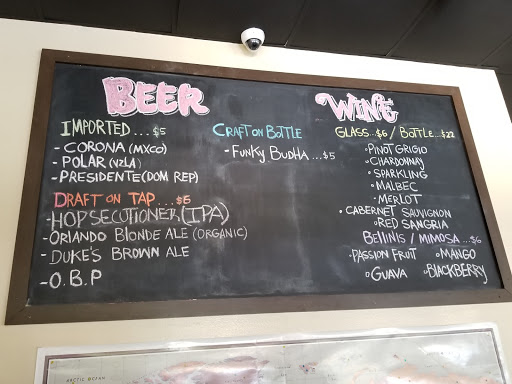 BEER
IMPORTED...$5
- CORONA (MXCO)
- POLAR (VZLA)
- PRESIDENTE (DOM REP)
DRAFT ON TAP....$6
- HOPSECUTIONER (IPA)
- ORLANDO BLONDE ALE (ORGANIC)
- DUKE'S BROWN ALE
- O.B.P
CRAFT ON BOTTLE
- FUNKY BUDHA...$5
WINE
GLASS...$6 / BOTTLE...$22
PINOT GRIGIO
CHARDONNAY
SPARKLING
MALBEC
MERLOT
CABERNET SAUVIGNON
RED SANGRIA
BELLINIS / MIMOSA...$6
PASSION FRUIT
MANGO
GUAVA
BLACKBERRY
ARCTIC OCEAN